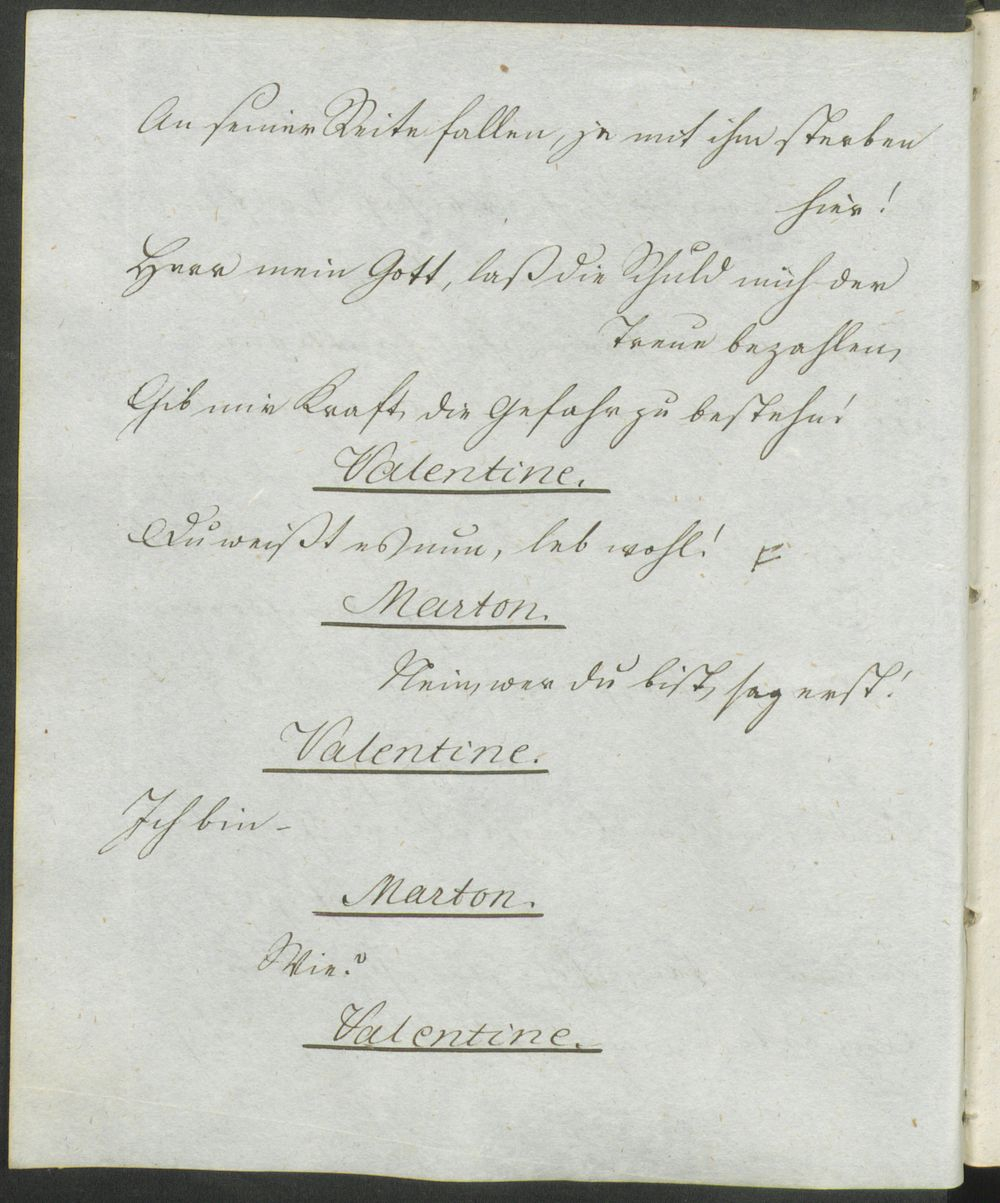 An seiner Seite fallen, ja mit ihm sterben
hier!
Herr mein Gott, laß die Schuld mich der
Treue bezahlen,
Gib mir Kraft, die Gefahr zu bestehn!
Valentine.
Du weißt es nun, leb wohl!
Marton.
Nein, wer du bist, sag erst!
Valentine.
Ich bin –
Marton.
Wie?
Valentine.